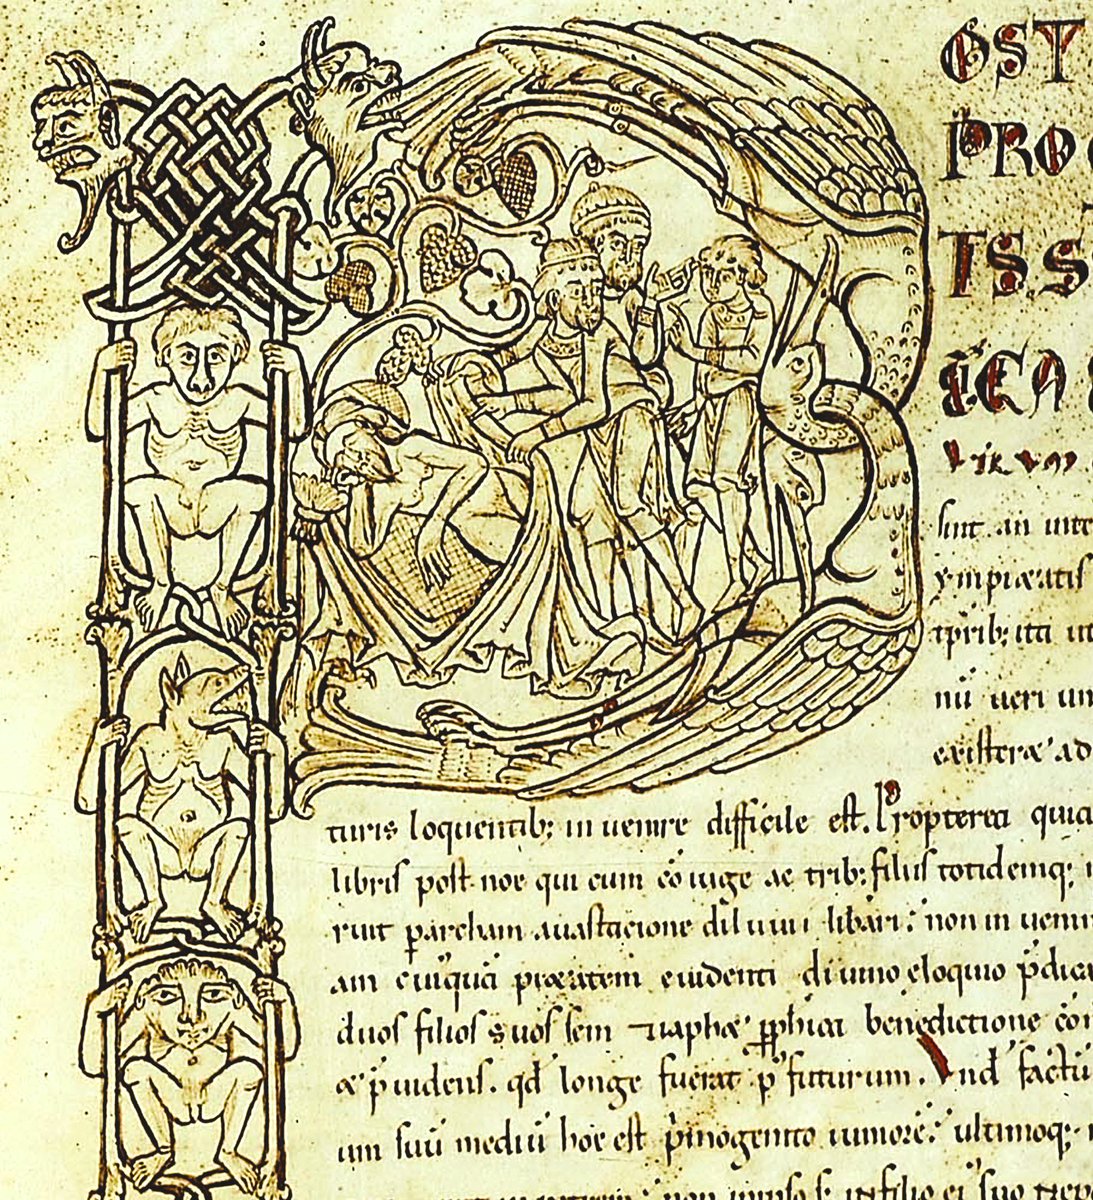 POST
PRO
TISS
GEA
VTRVM
sint. an int
ympiętatis
tprib; ita ut
nū ueri un
existeræ ad
turis loquentib; inuenire difficile est. Propterea quia
libris post noe qui cum cōiuge ac trib; filiis totidemq;
ruit p archam auastatione diluuii libari; non inueni
am cuiusquā piætatem euidenti diuino eloquio p̄dica
duos filios suos sem & iaphæ pphica benedictione cō
& p̄uidens. qd longe fuerat p futurum. Vnd factū
um suū mediū hoc est p̄mogenito minorē; ultimoq;